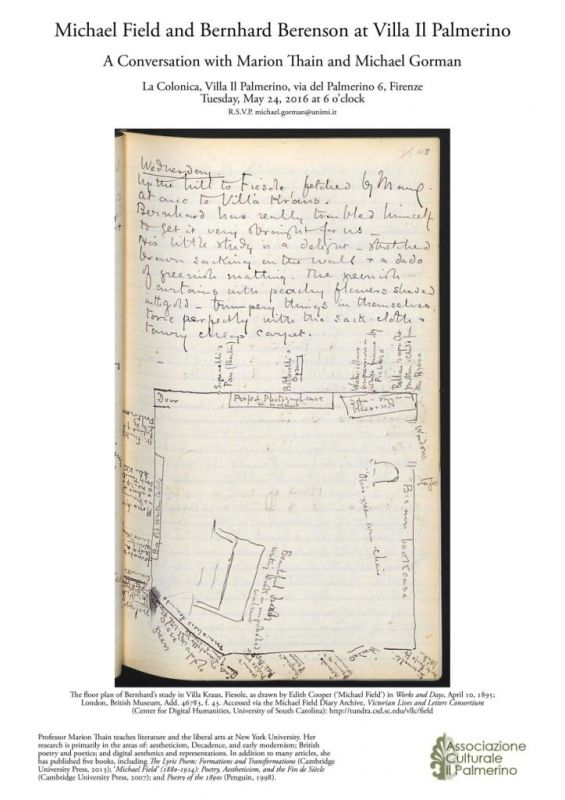 Michael Field and Bernhard Berenson at Villa Il Palmerino
A Conversation with Marion Thain and Michael Gorman
La Colonica, Villa Il Palmerino, via del Palmerino 6, Firenze
Tuesday, May 24, 2016 at 6 o'clock
R.S.V.P. michael.gorman@unimi.it
43
Wednesday.
Up the hill to Fiesole fetched by Mary.
At once to Villa Kraus.
Bernhard has really troubled himself
to get it very straight for us –
His little study is a delight – stretched
brown sacking on the wall + a dado
of greenish matting. The greenish
curtains with peachy flowers shaded
with gold – trumpery things in themselves
tone perfectly with the sack-cloth +
tawny cheap carpet.
Pan (Berlin)
Botticelli's
Spring
Door
Perfect Photograph case
Window
Big new bookcase
chair
Beautiful
The floor plan of Bernhard's study in Villa Kraus, Fiesole, as drawn by Edith Cooper ('Michael Field') in Works and Days, April 10, 1895;
London, British Museum, Add. 46783, f. 43. Accessed via the Michael Field Diary Archive, Victorian Lives and Letters Consortium
(Center for Digital Humanities, University of South Carolina): http://tundra.csd.sc.edu/vllc/field
Professor Marion Thain teaches literature and the liberal arts at New York University. Her
research is primarily in the areas of: aestheticism, Decadence, and early modernism; British
poetry and poetics; and digital aesthetics and representations. In addition to many articles, she
has published five books, including The Lyric Poem: Formations and Transformations (Cambridge
University Press, 2013); 'Michael Field' (1880-1914): Poetry, Aestheticism, and the Fin de Siècle
(Cambridge University Press, 2007); and Poetry of the 1890s (Penguin, 1998).
Associazione
Culturale
Il Palmerino